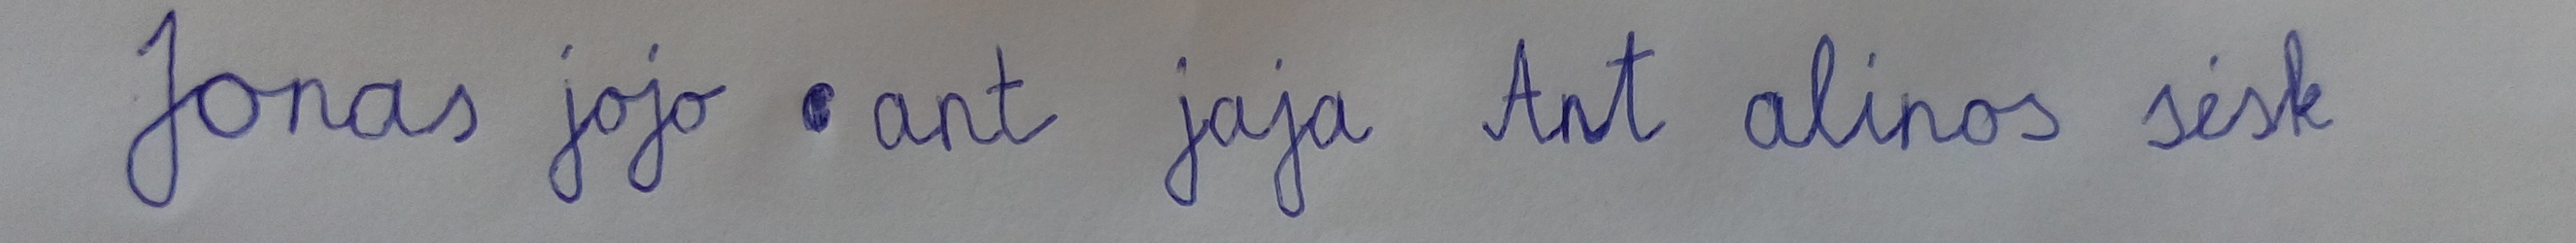 Jonas jojo ant jaja Ant alinos sėsk